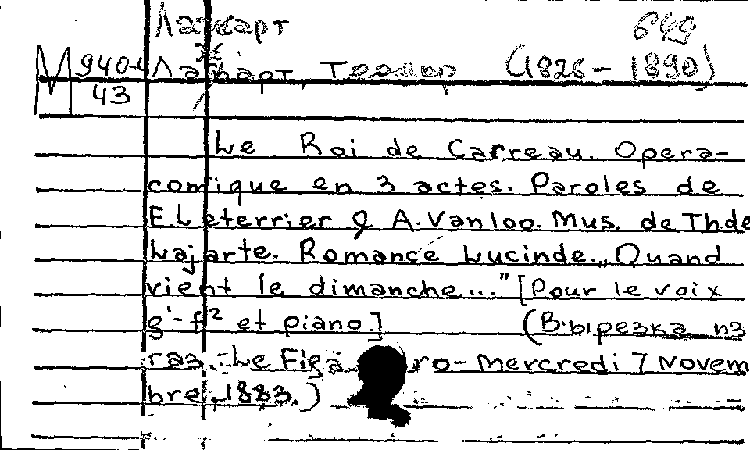 Лажарт 649
М 940-4 Лажарт, Теодор (1826-1890)
43
Le Roi de Carreau. Opera-
comique en 3 actes. Paroles de
E. Leterrier & A. Vanloo. Mus. de Th de
Lajarte. Romance Lucinde „Quand
vient le dimanche..." [Pour le voix
g'-f² et piano.] (Вырезка из
газ. Le Figaro- Mercredi 7 Novem
bre, 1883.)